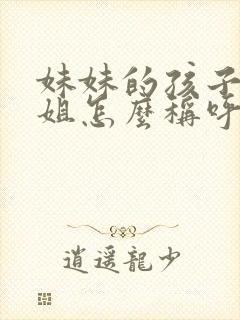 妹妹的孩子
姐怎麼稱呼
逍遥龍少